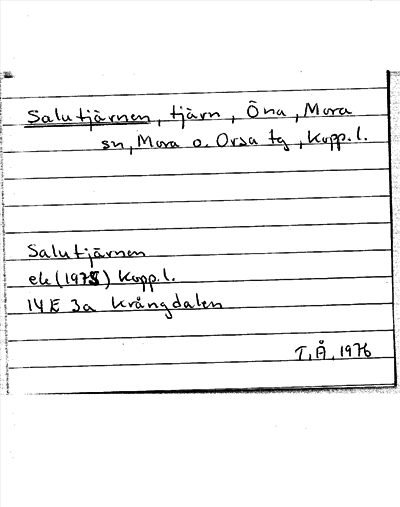 Salutjärnen, tjärn, Öna, Mora
sn, Mora o. Orsa tg, Kopp.l.
Salutjärnen
ek (1975) Kopp.l.
14E 3a Krångdalen
T.Å. 1976